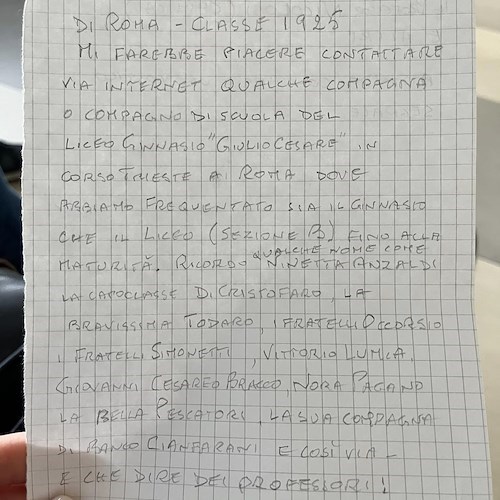 DI ROMA - CLASSE 1925
MI FAREBBE PIACERE CONTATTARE
VIA INTERNET QUALCHE COMPAGNA
O COMPAGNO DI SCUOLA DEL
LICEO GINNASIO "GIULIO CESARE" IN
CORSO TRIESTE A ROMA DOVE
ABBIAMO FREQUENTATO SIA IL GINNASIO
CHE IL LICEO (SEZIONE B) FINO ALLA
MATURITÀ. RICORDO QUALCHE NOME COME NINETTA ANZALDI
LA CAPOCLASSE DI CRISTOFARO, LA
BRAVISSIMA TODARO, I FRATELLI OCCORSIO
I FRATELLI SIMONETTI, VITTORIO LUMIA,
GIOVANNI CESAREO BRACCO, NORA PAGANO
LA BELLA PESCATORI, LA SUA COMPAGNA
DI BANCO CIANFARANI E COSÌ VIA -
E CHE DIRE DEI PROFESSORI!